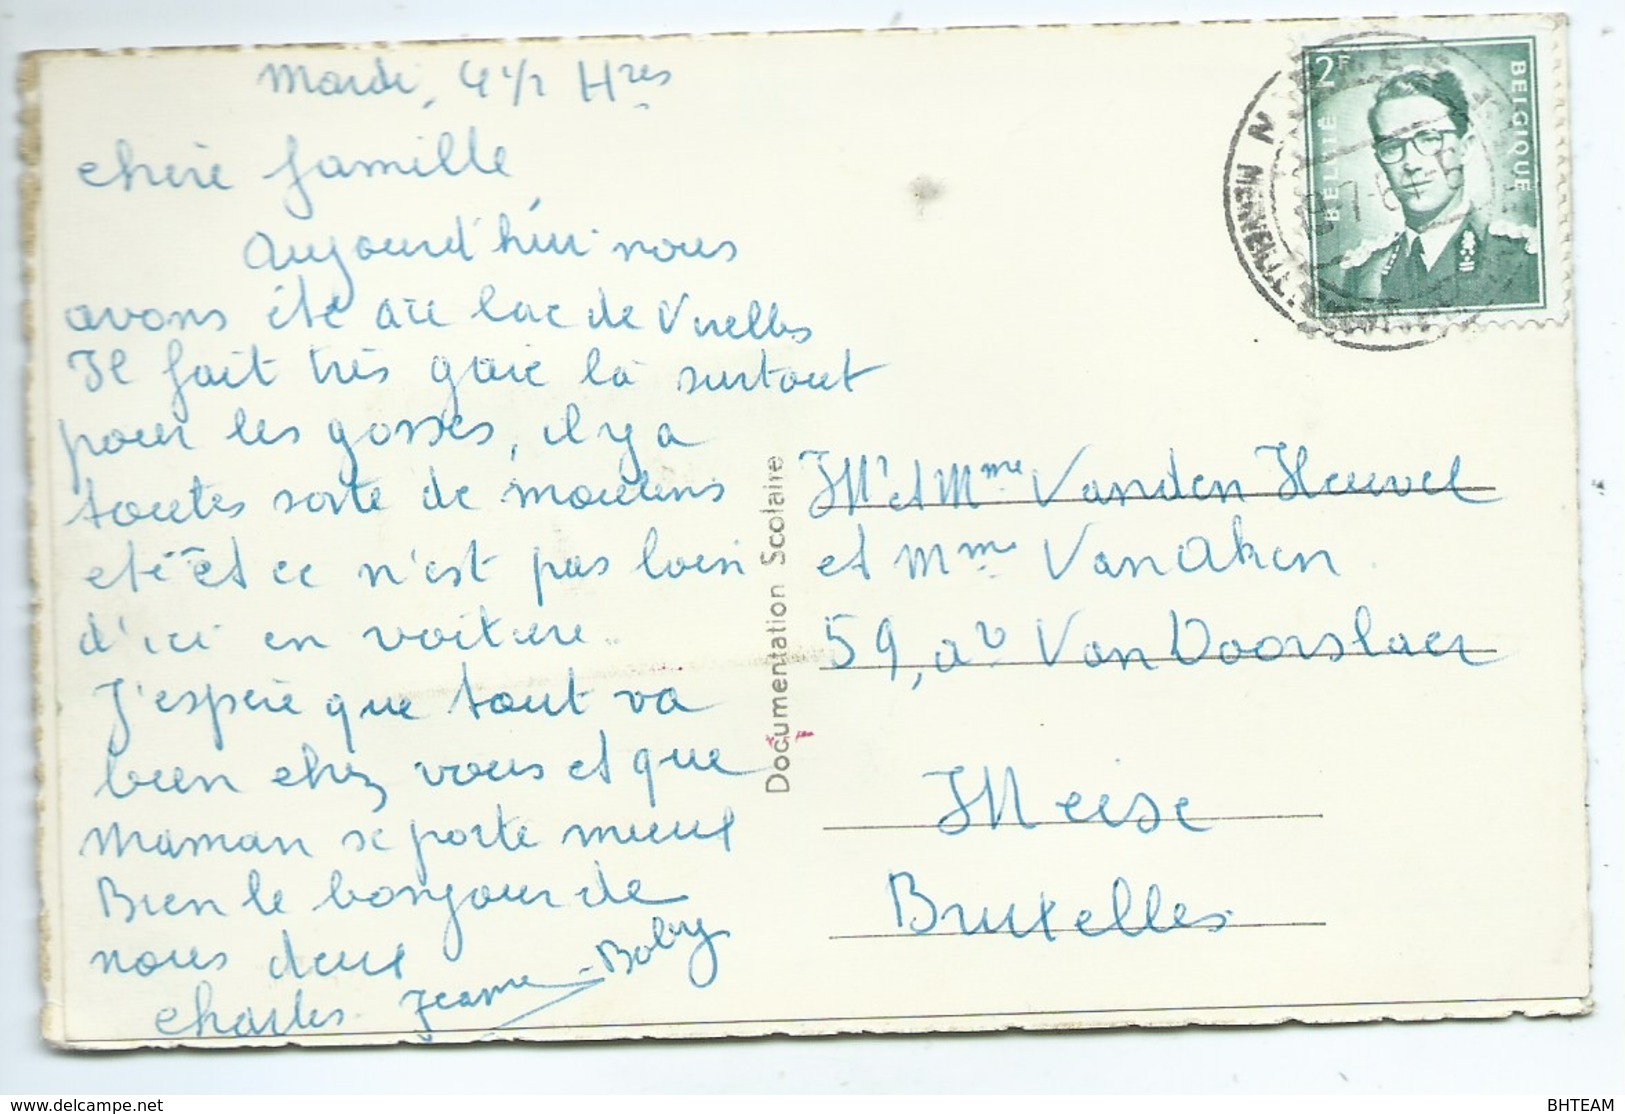 Mardi, 4 1/2 Hres
Chère famille,
Aujourd'hui nous
avons été au lac de Virelles
Il fait très gaie là surtout
pour les gosses, il y a
toutes sorte de moulins
etc et ce n'est pas loin
d'ici en voiture
J'espère que tout va
bien chez vous et que
Maman se porte mieux
Bien le bonjour de
nous deux
Charles Jeanne - Boby
Documentation Scolaire
Mr et Mme Vanden Heuvel
et Mme Van Aken
59, av Van Doorslaer
Meise
Bruxelles
2F
BELGIË
BELGIQUE
BHTEAM
https://www.delcampe.net